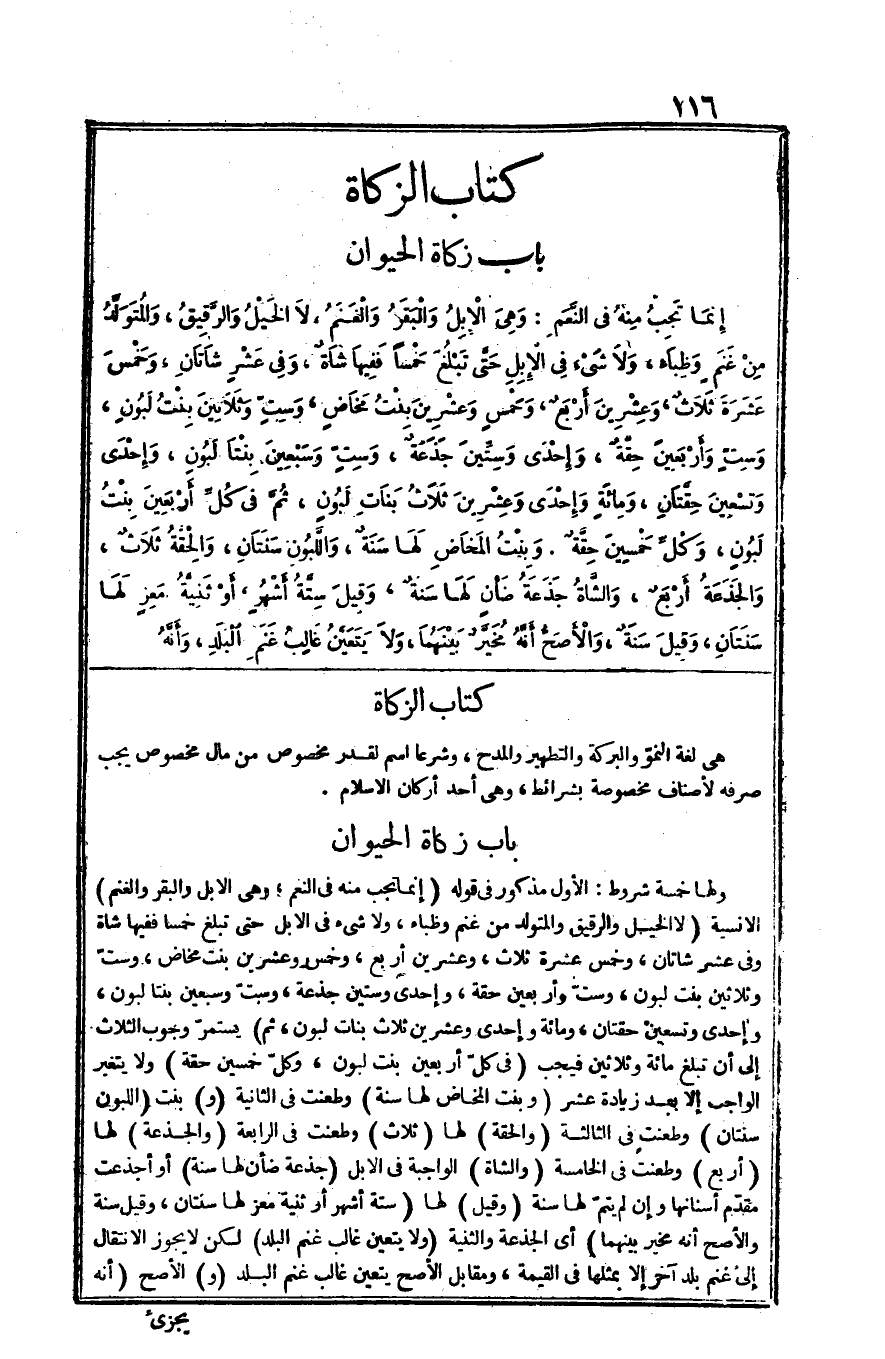 ٢١٦
كتاب الزكاة
باب زكاة الحيوان
إِنَّمَا تَجِبُ مِنْهُ فِى النَّعَمِ : وَهِىَ الْإِبِلُ وَالْبَقَرُ وَالْغَنَمُ ، لاَ الخَيْلُ وَالرَّقِيقُ ، وَالْمُتَوَلِّدُ
مِنْ غَنَمٍ وَظِبَاء ، وَلاَ شَىْءَ فِى الْإِبِلِ حَتَّى تَبْلُغَ خَمْساً فَفِيهَا شَاةٌ ، وَفِى عَشْرٍ شَاتَانِ ، وَخَمْسَ
عَشَرَةَ ثَلاَثٌ ، وَعِشْرِينَ أَرْبَعٌ ، وَخَمْسٍ وَعِشْرِينَ بِنْتُ مَخَاضٍ ، وَسِتٍّ وَثَلاَثِينَ بِنْتُ لَبُونٍ ،
وَسِتٍّ وَأَرْبَعِينَ حِقَّةٌ ، وَإِحْدَى وَسِتِّينَ جَذَعَةٌ ، وَسِتٍّ وَسَبْعِينَ بِنْتَا لَبُونٍ ، وَإِحْدَى
وَتِسْعِينَ حِقَّتَانِ ، وَمِائَةٍ وَإِحْدَى وَعِشْرِينَ ثَلاَثُ بَنَاتِ لَبُونٍ ، ثُمَّ فِى كُلِّ أَرْبَعِينَ بِنْتُ
لَبُونٍ ، وَكُلِّ خَمْسِينَ حِقَّةٌ . وَبِنْتُ المَخَاضِ لَهَا سَنَةٌ ، وَاللَّبُونِ سَنَتَانِ ، وَالْحِقَّةُ ثَلاَثٌ ،
وَالجَذَعَةُ أَرْبَعٌ ، وَالشَّاةُ جَذَعَةُ ضَأْنٍ لَهَا سَنَةٌ ، وَقِيلَ سِتَّةُ أَشْهُرٍ ، أَوْ ثَنِيَّةُ مَعِزٍ لَهَا
سَنَتَانِ ، وَقِيلَ سَنَةٌ ، وَالْأَصَحُّ أَنَّهُ مُخَيَّرٌ بَيْنَهُمَا ، وَلاَ يَتَعَيَّنُ غَالِبُ غَنَمِ الْبَلَدِ ، وَأَنَّهُ
كتاب الزكاة
هى لغة النموّ والبركة والتطهير والمدح ، وشرعا اسم لقدر مخصوص من مال مخصوص يجب
صرفه لأصناف مخصوصة بشرائط ، وهى أحد أركان الاسلام .
باب زكاة الحيوان
ولها خمسة شروط : الأول مذكور فى قوله ( إنما تجب منه فى النعم ؛ وهى الابل والبقر والغنم )
الانسية ( لا الخيل والرقيق والمتولد من غنم وظباء ، ولا شىء فى الابل حتى تبلغ خمسا ففيها شاة
وفى عشر شاتان ، وخمس عشرة ثلاث ، وعشرين أربع ، وخمس وعشرين بنت مخاض ، وستّ
وثلاثين بنت لبون ، وستّ وأربعين حقة ، وإحدى وستين جذعة ، وستّ وسبعين بنتا لبون ،
وإحدى وتسعين حقتان ، ومائة وإحدى وعشرين ثلاث بنات لبون ، ثم ) يستمرّ وجوب الثلاث
إلى أن تبلغ مائة وثلاثين فيجب ( فى كلّ أربعين بنت لبون ، وكلّ خمسين حقة ) ولا يتغير
الواجب إلا بعد زيادة عشر ( وبنت المخاض لها سنة ) وطعنت فى الثانية ( و ) بنت ( اللبون
سنتان ) وطعنت فى الثالثة ( والحقة ) لها ( ثلاث ) وطعنت فى الرابعة ( والجذعة ) لها
( أربع ) وطعنت فى الخامسة ( والشاة ) الواجبة فى الابل ( جذعة ضأن لها سنة ) أو أجذعت
مقدّم أسنانها وإن لم يتمّ لها سنة ( وقيل ) لها ( ستة أشهر أو ثنية معز لها سنتان ، وقيل سنة
والأصح أنه مخير بينهما ) أى الجذعة والثنية ( ولا يتعين غالب غنم البلد ) لكن لا يجوز الانتقال
إلى غنم بلد آخر إلا بمثلها فى القيمة ، ومقابل الأصح يتعين غالب غنم البلد ( و ) الأصح ( أنه
يجزئ